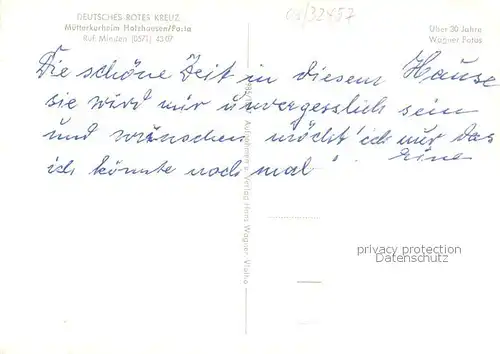 DEUTSCHES ROTES KREUZ
Mütterkurheim Holzhausen/Porta
Ruf: Minden (0571) 4307
Über 30 Jahre
Wagner Fotos
Die schöne Zeit in diesem Hause
sie wird mir unvergesslich sein
und wünschen möcht' ich nur das
Eine
ich könnte noch mal!
Aufnahmen u. Verlag Hans Wagner - Vlotho
privacy protection
Datenschutz